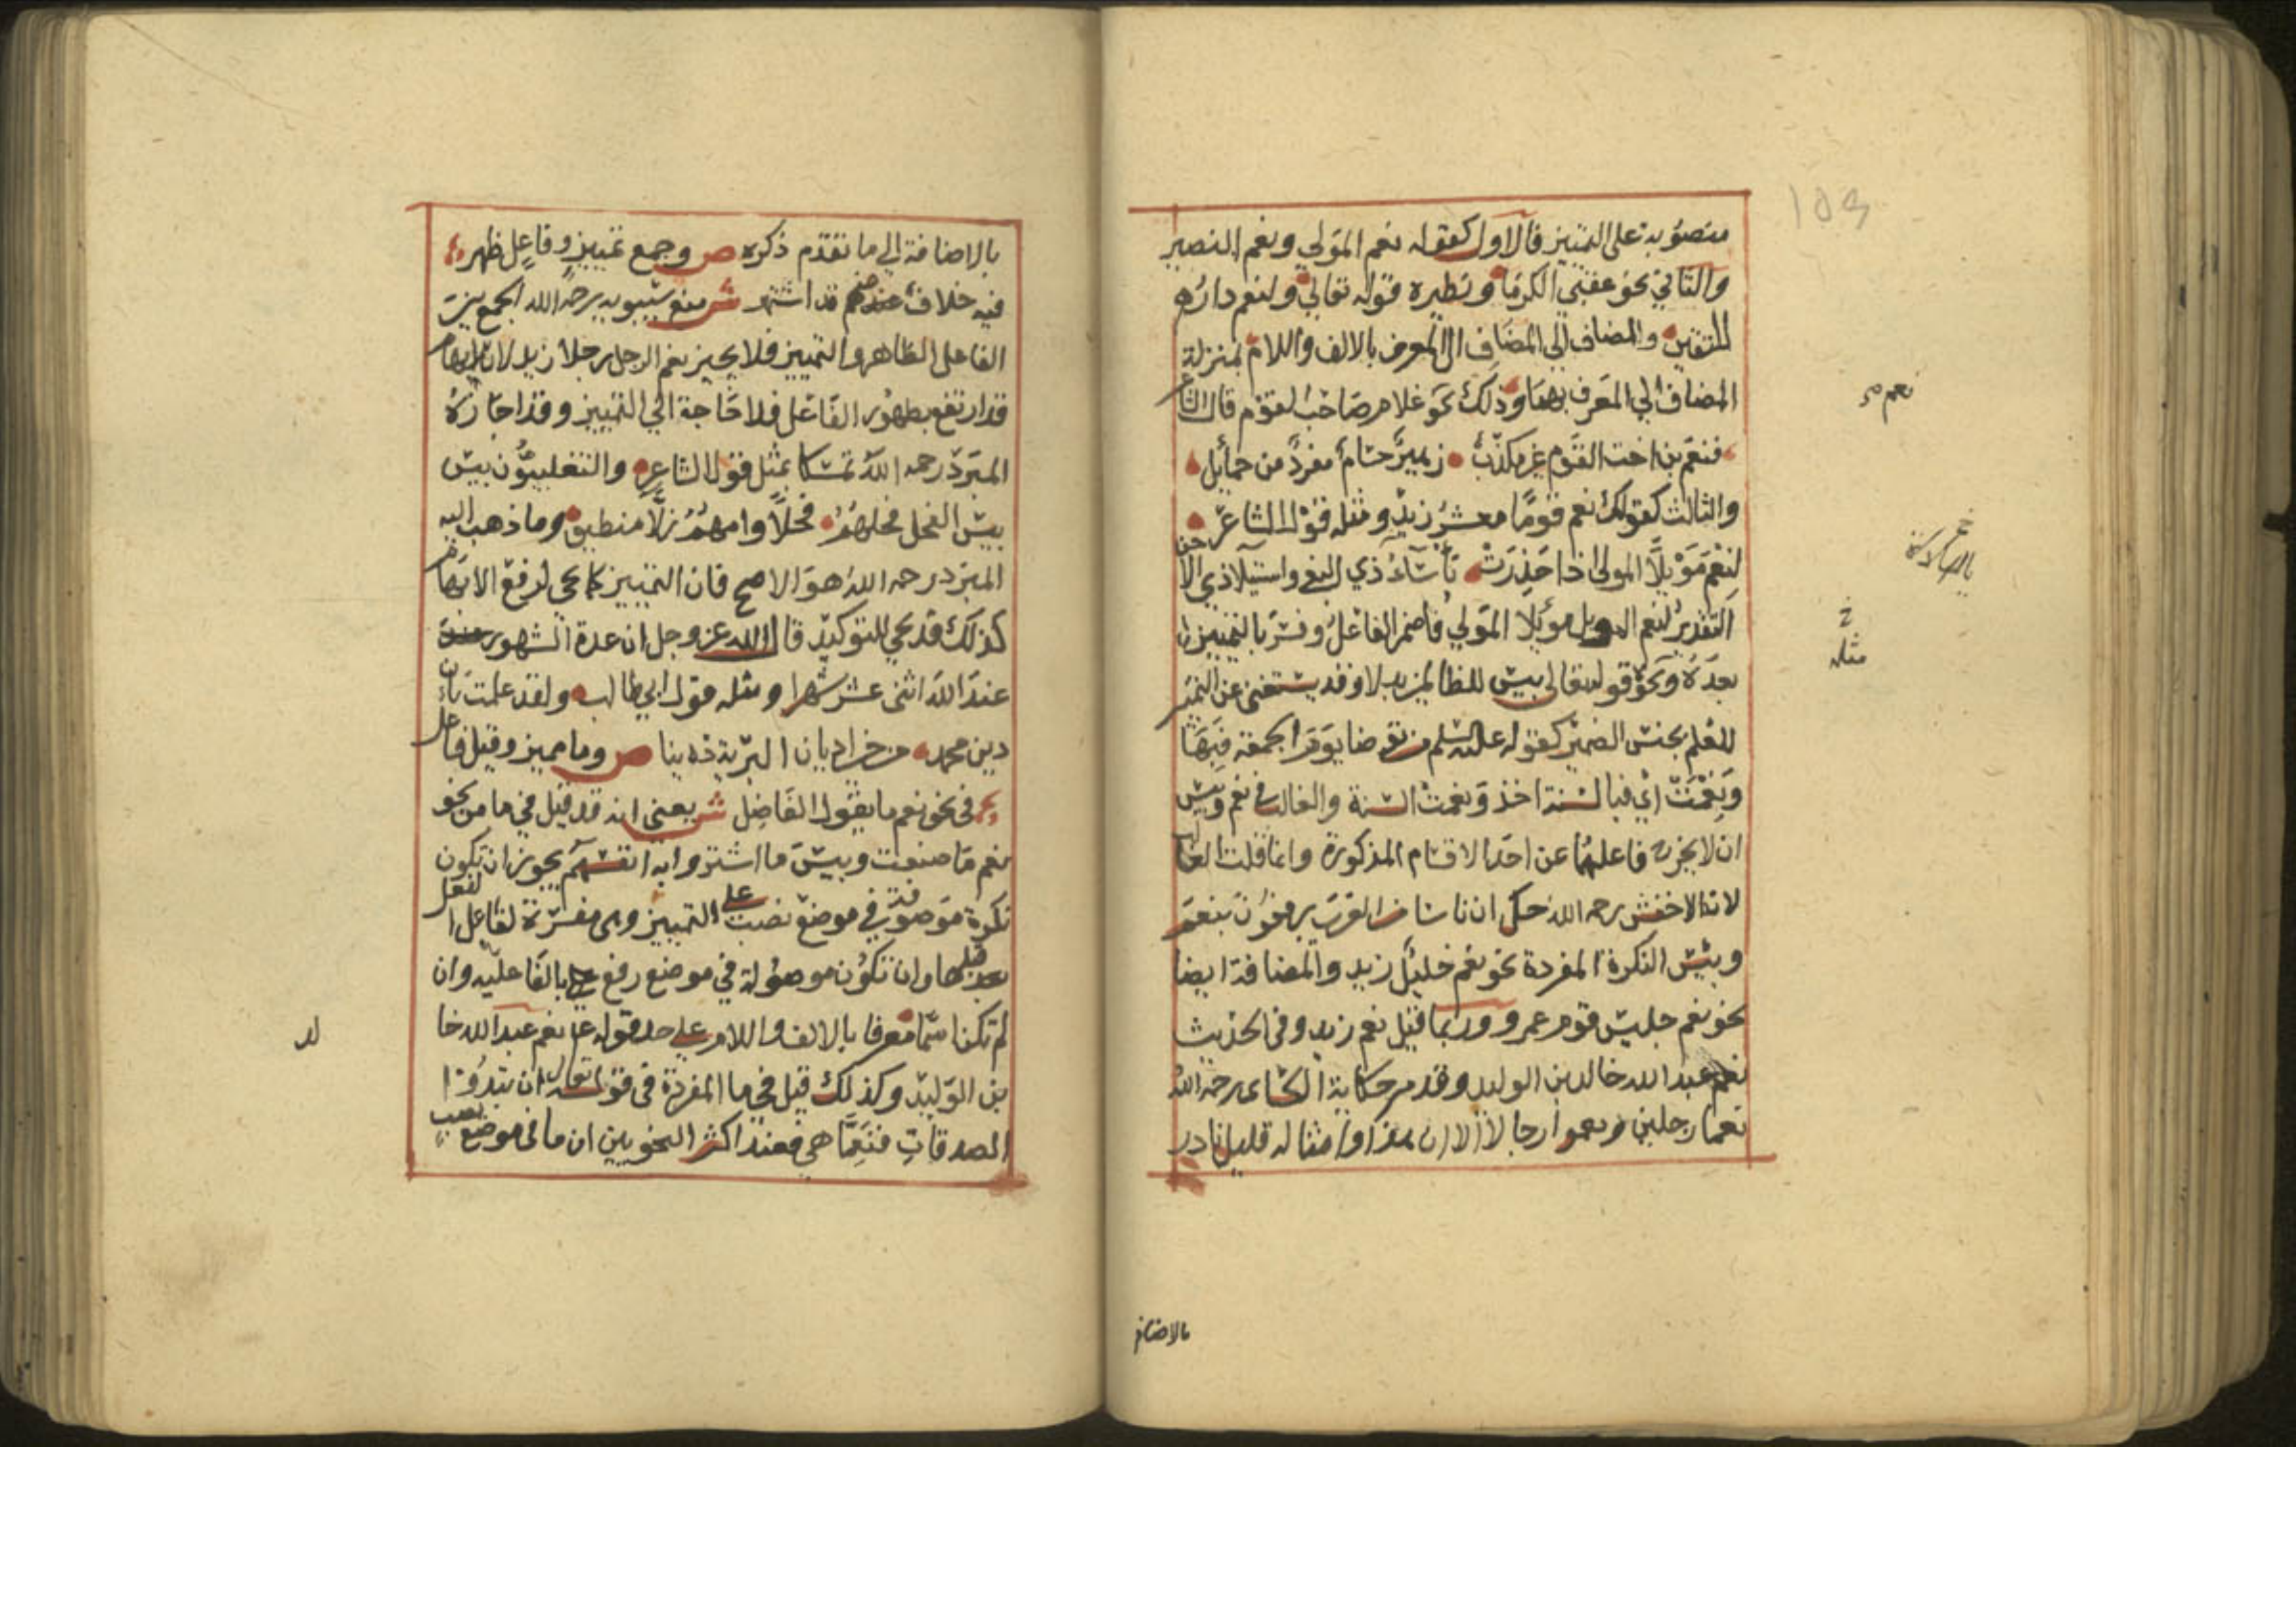 منصوبة على التمييز فالاول كقوله نعم المولى ونعم النصير
والثاني نحو عقبى الكرما ونظيره قوله تعالى ولنعم دار
المتقين والمضاف الى المضاف الى المعرف بالالف واللام بمنزلة
المضاف الى المعرف بهما وذلك نحو غلام صاحب القوم قال الشاعر
فنعم بن اخت القوم غير مكذب زهير حسام مفرد من حمائل
والثالث كقولك نعم قوما معشر زيد ومثله قول الشاعر
لنعم موئلا المولى اذا حذرت بأسآء ذي البغي واستيلآ ذي الاحن
التقدير لنعم الموئل موئلا المولى فاضمر الفاعل وفسر بالتمييز
بعده ونحو قوله تعالى بيس للظالمين بدلا وقد يستغنى عن التمييز
للعلم بجنس الضمير كقوله عليه السلم من توضا يوم الجمعة فبها
ونعمت اي فبالسنة اخذ ونعمت السنة والغالب في نعم وبيس
ان لا يخرج فاعلهما عن احد الاقسام المذكورة وانما قلت الغالب
لان الاخفش رحمه الله حكى ان ناسا من العرب يرفعون بنعم
وبئس النكرة المفردة نحو نعم خليل زيد والمضافة ايضا
نحو نعم جليس قوم عمرو وربما قيل نعم زيد وفي الحديث
نعم عبد الله خالد بن الوليد وقد مر حكاية الكسائى رحمه الله
نعما رجلين ونعموا رجالا الا ان هذا وامثاله قليل نادر
نعم
خ
مثله
بالاضافة
بالاضافة الى ما تقدم ذكره ص وجمع تمييز وفاعل ظهر
فيه خلاف عنهم قد اشتهر ش منع سيبويه رحمه الله الجمع بين
الفاعل الظاهر والتمييز فلا يجيز نعم الرجل رجلا زيد لان الابهام
قد ارتفع بظهور الفاعل فلا حاجة الى التمييز وقد اجازه
المبرد رحمه الله تمسكا بمثل قول الشاعر والتغلبيون بيس
بيس الفحل فحلهم فحلا وامهم زلآ منطيق وما ذهب اليه
المبرد رحمه الله هو الاصح فان التمييز كما يجي لرفع الابهام
كذلك قد يجي للتوكيد قال الله عز وجل ان عدة الشهور
عند الله اثنى عشر شهرا ومثله قول ابي طالب ولقد علمت بان
دين محمد من خير اديان البرية دينا ص وما مميز وقيل فاعل
في نحو نعم ما يقول الفاضل ش يعني انه قد قيل في ما من نحو
نعم ما صنعت وبيس ما اشتروا به انفسهم يجوز ان تكون
نكرة موصوفة في موضع نصب على التمييز وهى مفسرة لفاعل الفعل
قبلها وان تكون موصولة في موضع رفع بالفاعلية وان
لم تكن اسما معرفا بالالف واللام على حد قوله نعم عبد الله خا
لد
بن الوليد وكذلك قيل في ما المفردة في قوله تعالى ان تبدوا
الصدقات فنعما هي فعند اكثر النحويين ان ما في موضع نصب